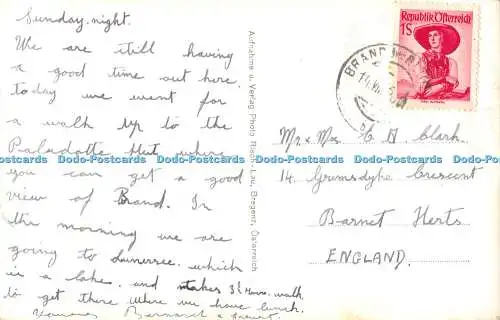 Sunday. night.
We are still having
a good time out here.
today we went for
a walk up to the
hut where
you can get a good
view of Brand. In
the morning we are
going to Lunersee. which
is a lake. and takes 3½ hours. walk
to get there where we have lunch.
Bernard &
Aufnahme u. Verlag Photo Bregenz, Österreich
Republik Österreich
1S
BRAND
Mr. & Mrs. C A Clark.
14. Grumsdyke Crescent
Barnet Herts
ENGLAND.
Dodo-Postcards Dodo-Postcards Dodo-Postcards Dodo-Postcards Dodo-Postcards Dodo-Postcards